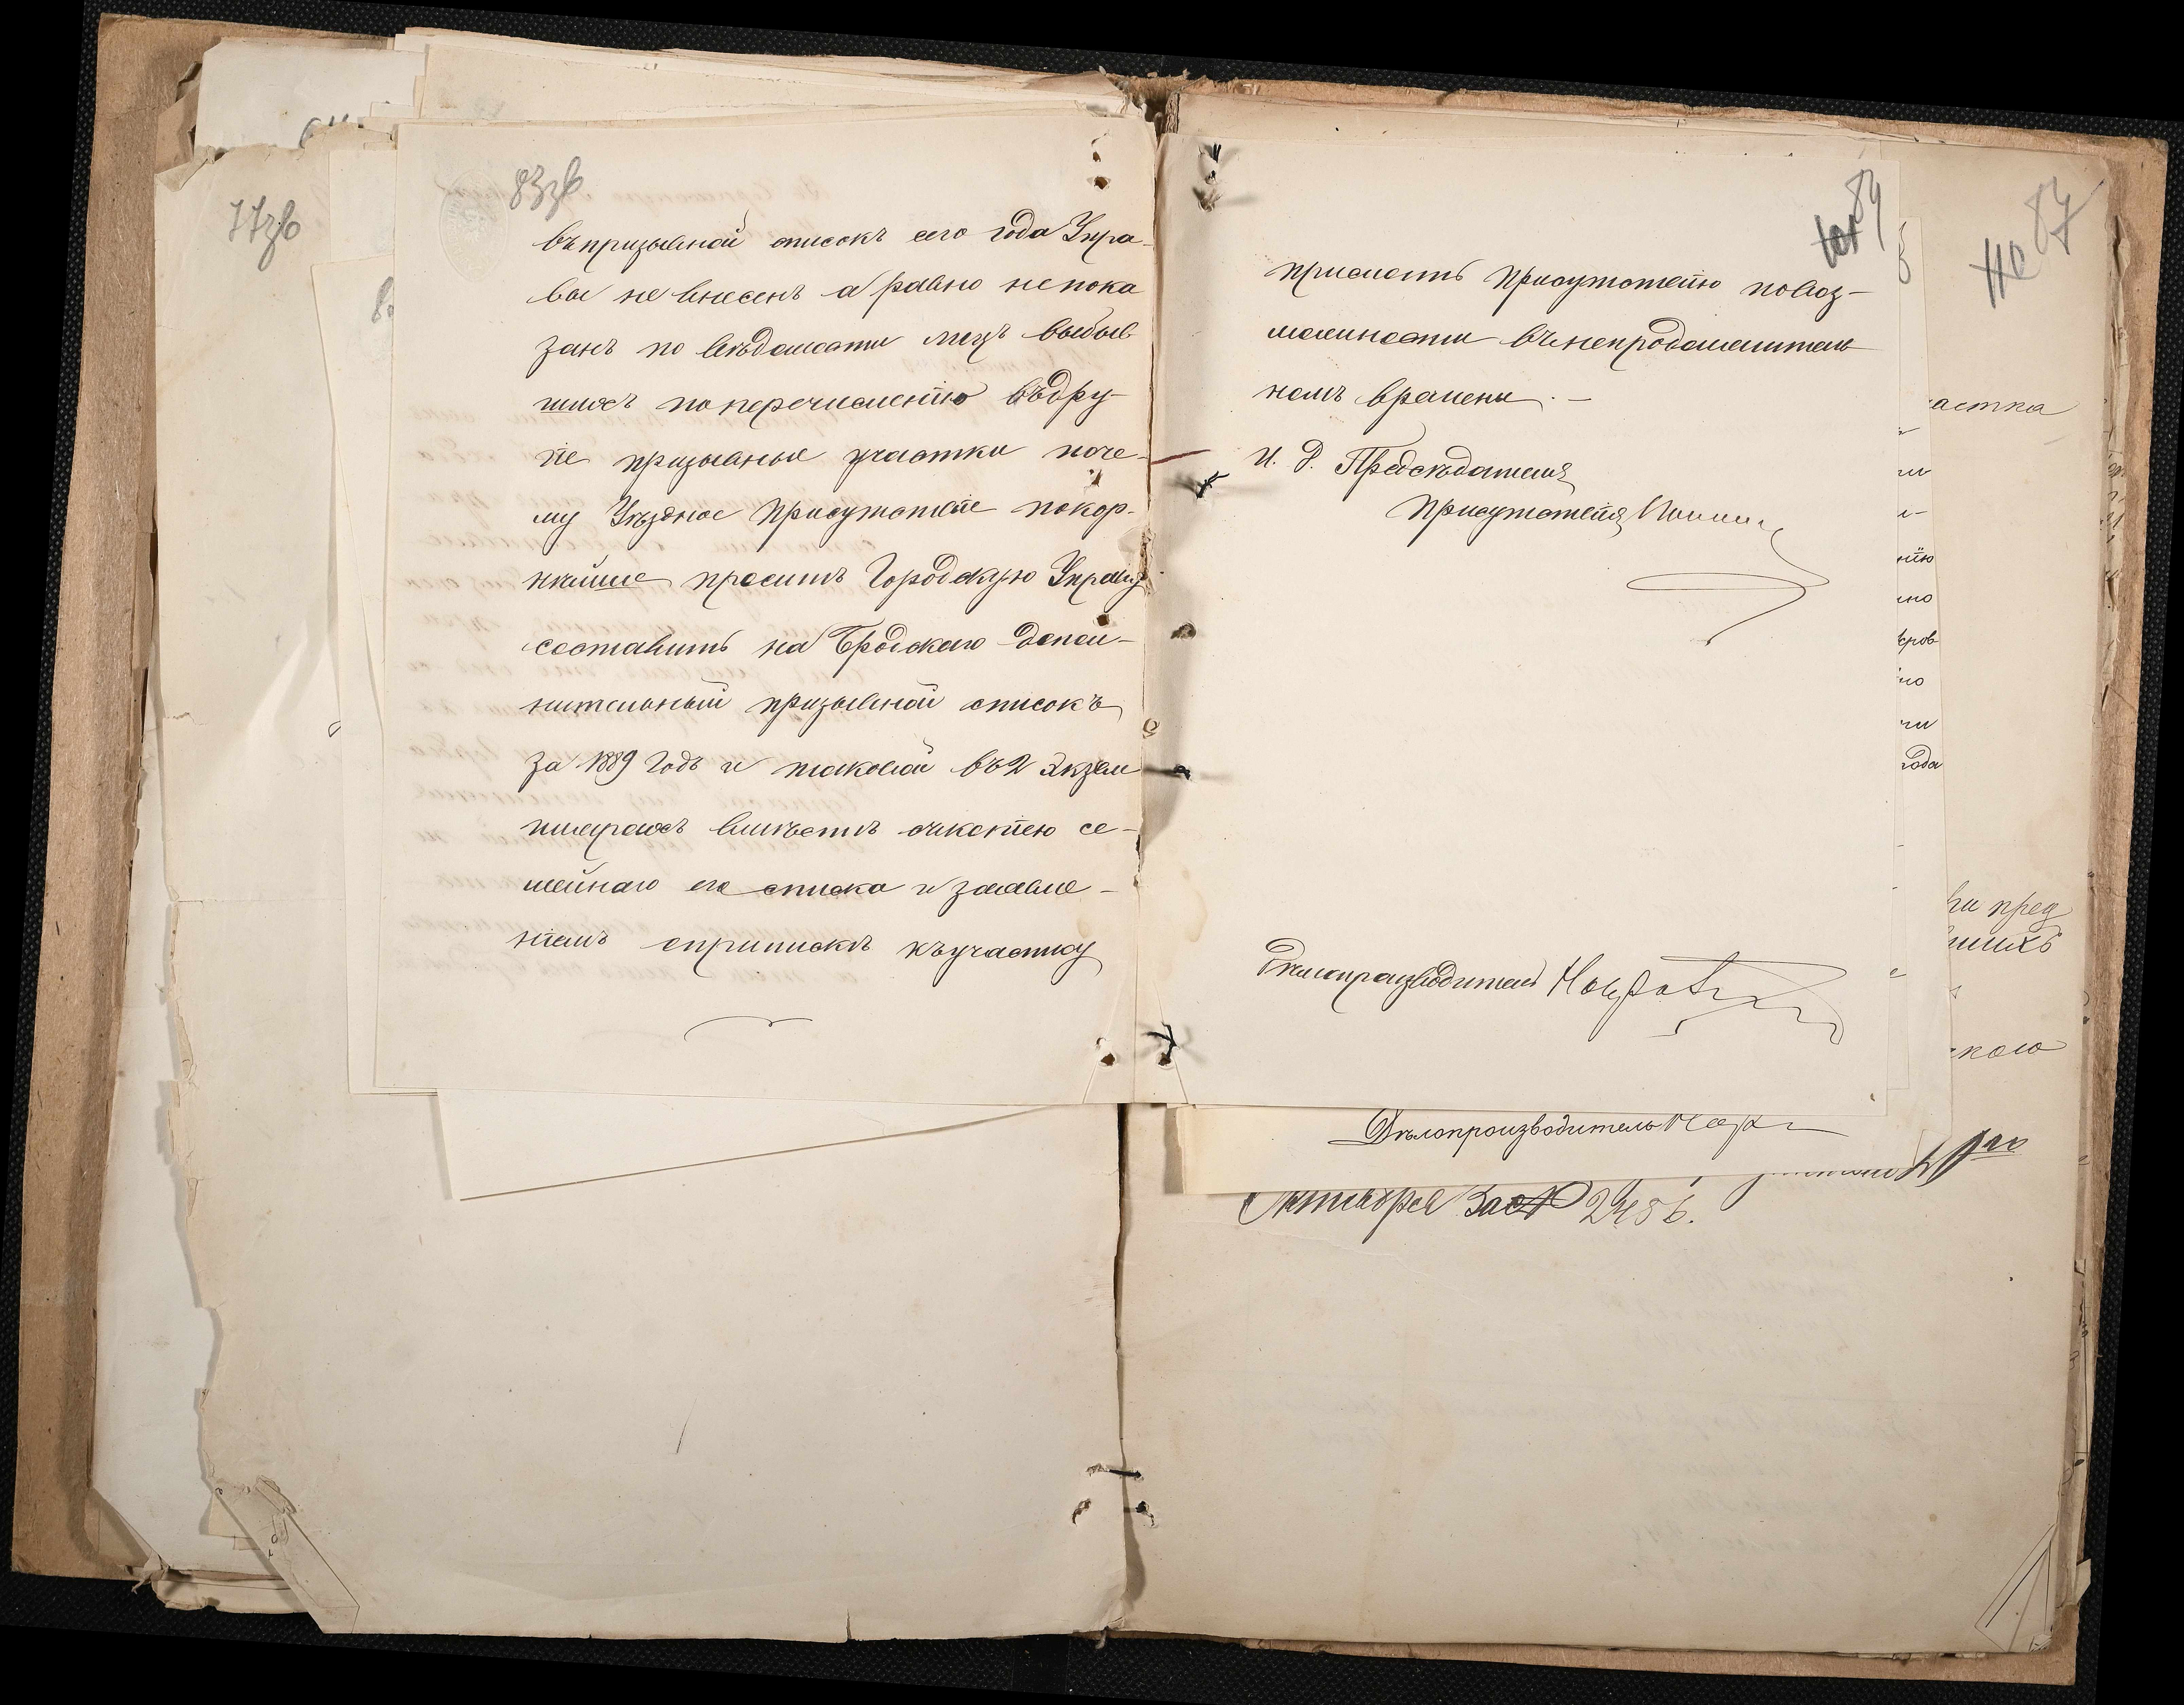 77зв
83зв
въ призывной списокъ сего года Упра-
вы не внесенъ а равно не пока
занъ по вѣдомости лицъ выбыв
шихъ по перечисленію въ дру-
гіе призывные участки поче-
му Уѣздное Присутствіе покор-
нѣйше проситъ Городскую Управу
составить на Бродскаго допол-
нительный призывной списокъ
за 1889 годъ и таковой въ 2 экзем
плярахъ вмѣстѣ съ копіею се-
мейнаго его списка и заявле-
ніемъ о припискѣ къ участку
84
прислать Присутствію по воз-
можности въ непродолжитель
номъ времени. -
И. д. Предсѣдателя
Присутствія
Дѣлопроизводитель
87
астка
нію
но
кров
но
ли
года
ви пред
шихъ
ского
Дѣлопроизводитель
Октября За № 2486.